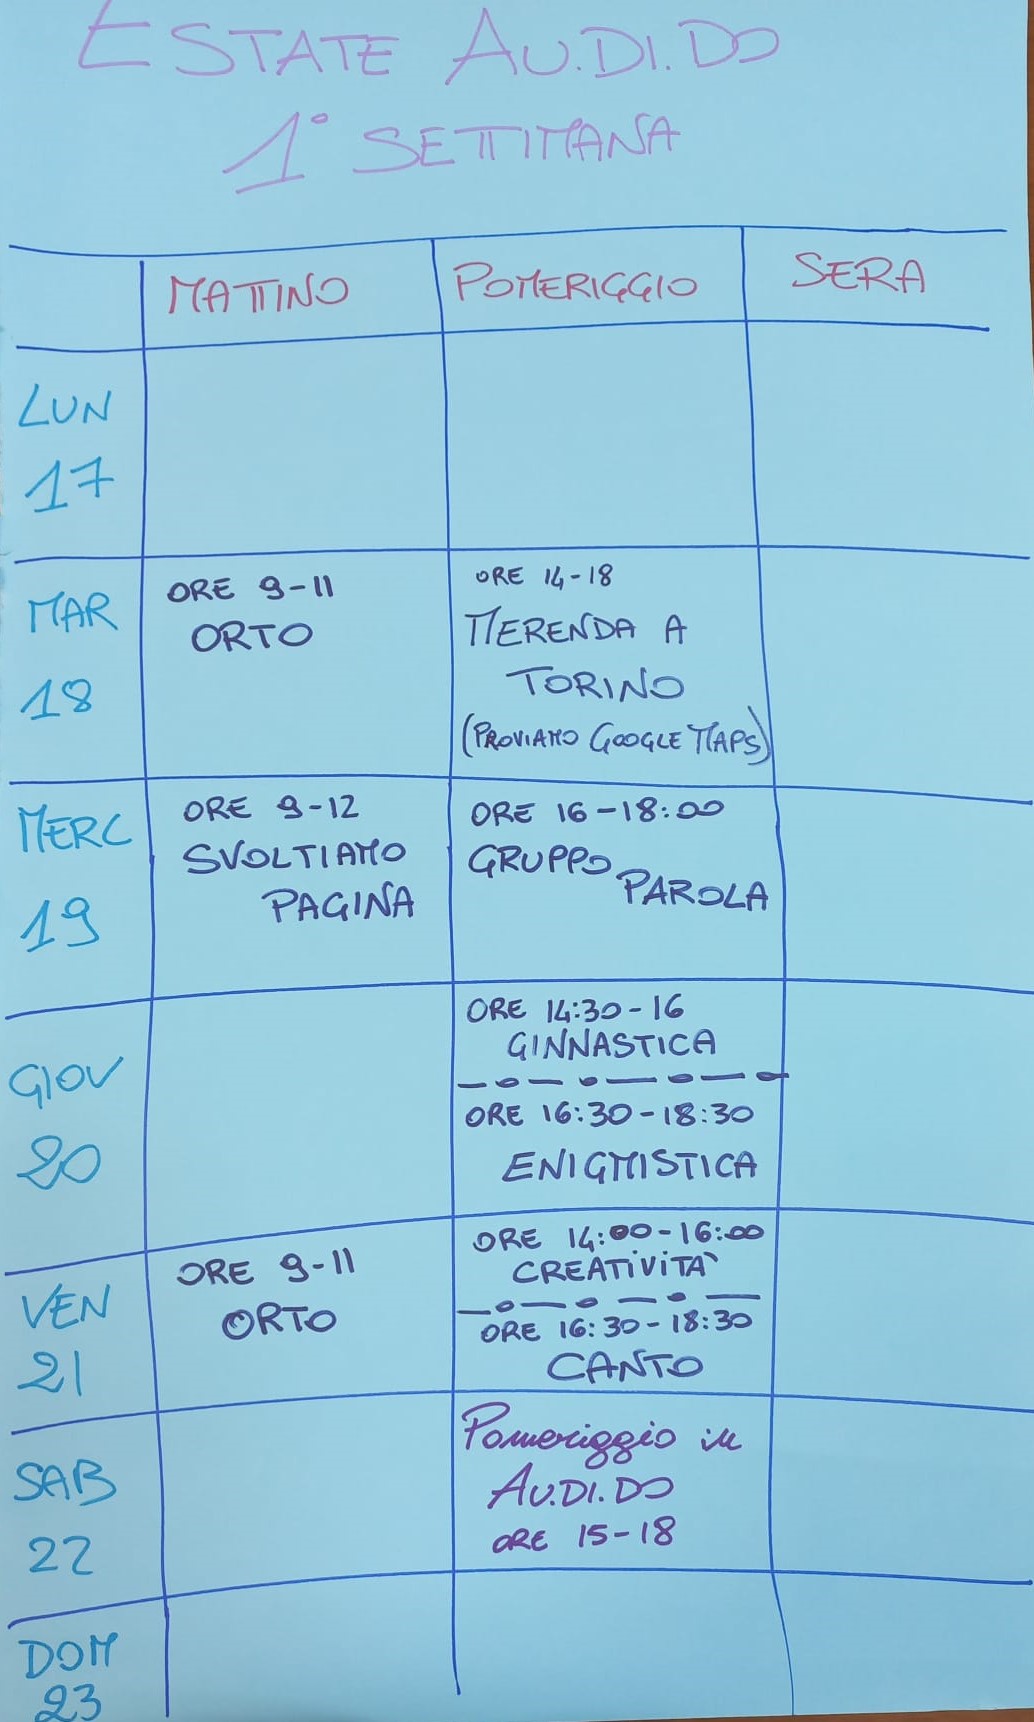 ESTATE AU.DI.DO
1° SETTIMANA
MATTINO POMERIGGIO SERA
LUN
17
MAR
18
ORE 9-11
ORTO
ORE 14-18
MERENDA A
TORINO
(PROVIAMO GOOGLE MAPS)
MERC
19
ORE 9-12
SVOLTIAMO
PAGINA
ORE 16-18:00
GRUPPO
PAROLA
GIOV
20
ORE 14:30-16
GINNASTICA
ORE 16:30-18:30
ENIGMISTICA
VEN
21
ORE 9-11
ORTO
ORE 14:00-16:00
CREATIVITÀ
ORE 16:30-18:30
CANTO
SAB
22
Pomeriggio in
AU.DI.DO
ORE 15-18
DOM
23